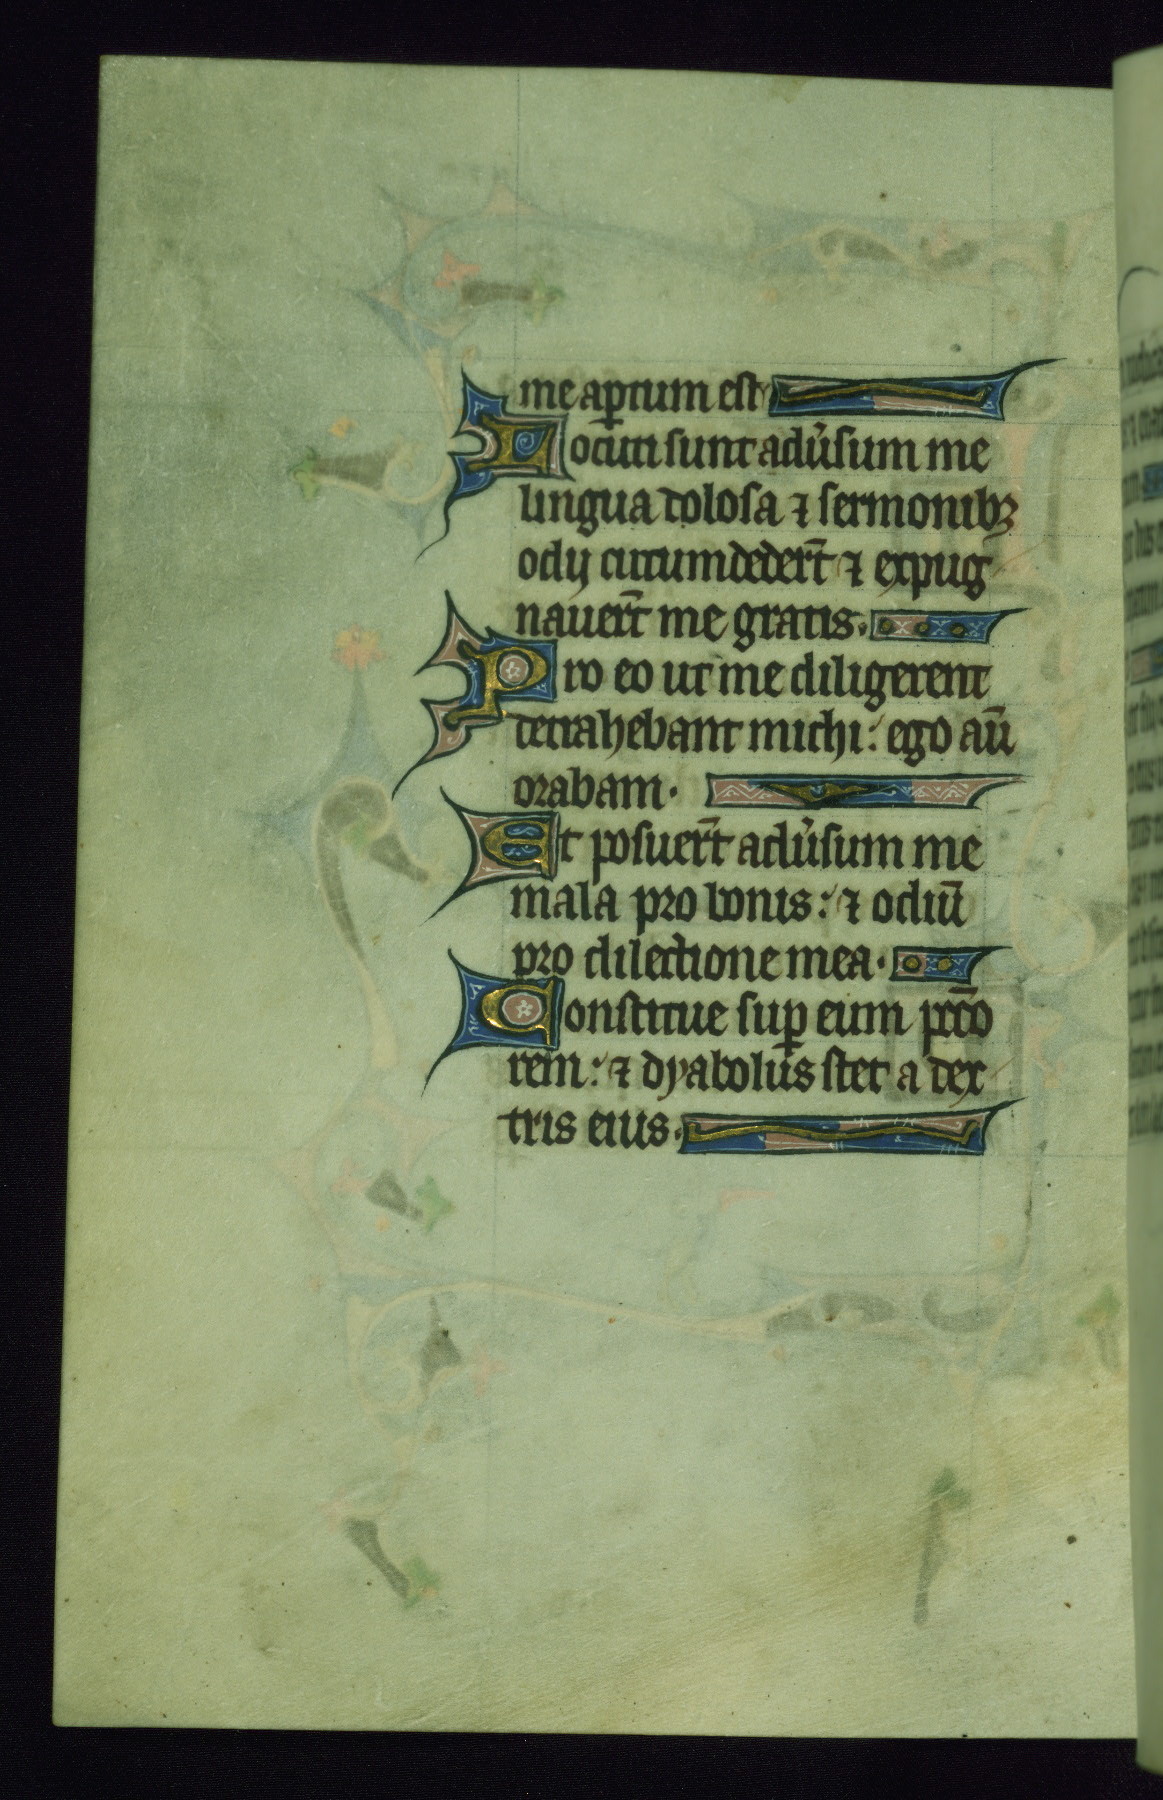 me aꝑtum est
Locuti sunt adũsum me
lingua dolosa ⁊ sermonibꝫ
odij circumdeder̄t ⁊ expug
nauer̄t me gratis.
Pro eo ut me diligerent
detrahebant michi: ego aū
orabam.
Et posuer̄t adũsum me
mala pro bonis: ⁊ odiū
pro dilectione mea.
Constitue suꝑ eum pcc̄o
rem: ⁊ dyabolus stet a dex
tris eius.